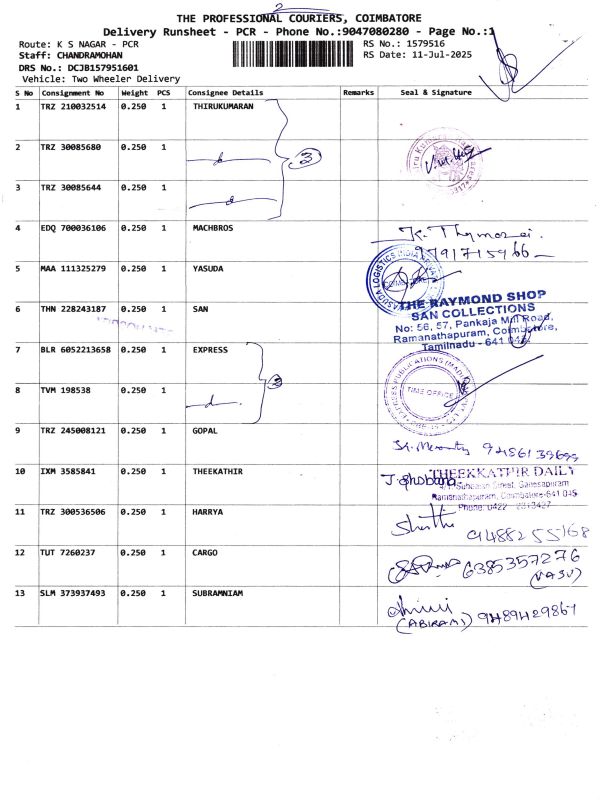 2
THE PROFESSIONAL COURIERS, COIMBATORE
Delivery Runsheet - PCR - Phone No.:9047080280 - Page No.:1
Route: K S NAGAR - PCR
RS No.: 1579516
Staff: CHANDRAMOHAN
RS Date: 11-Jul-2025
DRS No.: DCJB157951601
Vehicle: Two Wheeler Delivery
S No Consignment No Weight PCS Consignee Details Remarks Seal & Signature
1 TRZ 210032514 0.250 1 THIRUKUMARAN
2 TRZ 30085680 0.250 1
3
3 TRZ 30085644 0.250 1
4 EDQ 700036106 0.250 1 MACHBROS
9791715966
5 MAA 111325279 0.250 1 YASUDA
6 THN 228243187 0.250 1 SAN
THE RAYMOND SHOP
SAN COLLECTIONS
No: 56, 57, Pankaja Mill Road,
Ramanathapuram, Coimbatore,
Tamilnadu - 641 045.
7 BLR 6052213658 0.250 1 EXPRESS
TIME OFFICE
8 TVM 198538 0.250 1
9 TRZ 245008121 0.250 1 GOPAL
10 IXM 3585841 0.250 1 THEEKATHIR
THEEKKATPIR DAILY
Ramanathapuram, Coimbatore-641 045
11 TRZ 300536506 0.250 1 HARRYA
9488255168
12 TUT 7260237 0.250 1 CARGO
6385357276
(VASU)
13 SLM 373937493 0.250 1 SUBRAMNIAM
(ABIRAMI) 9489429867